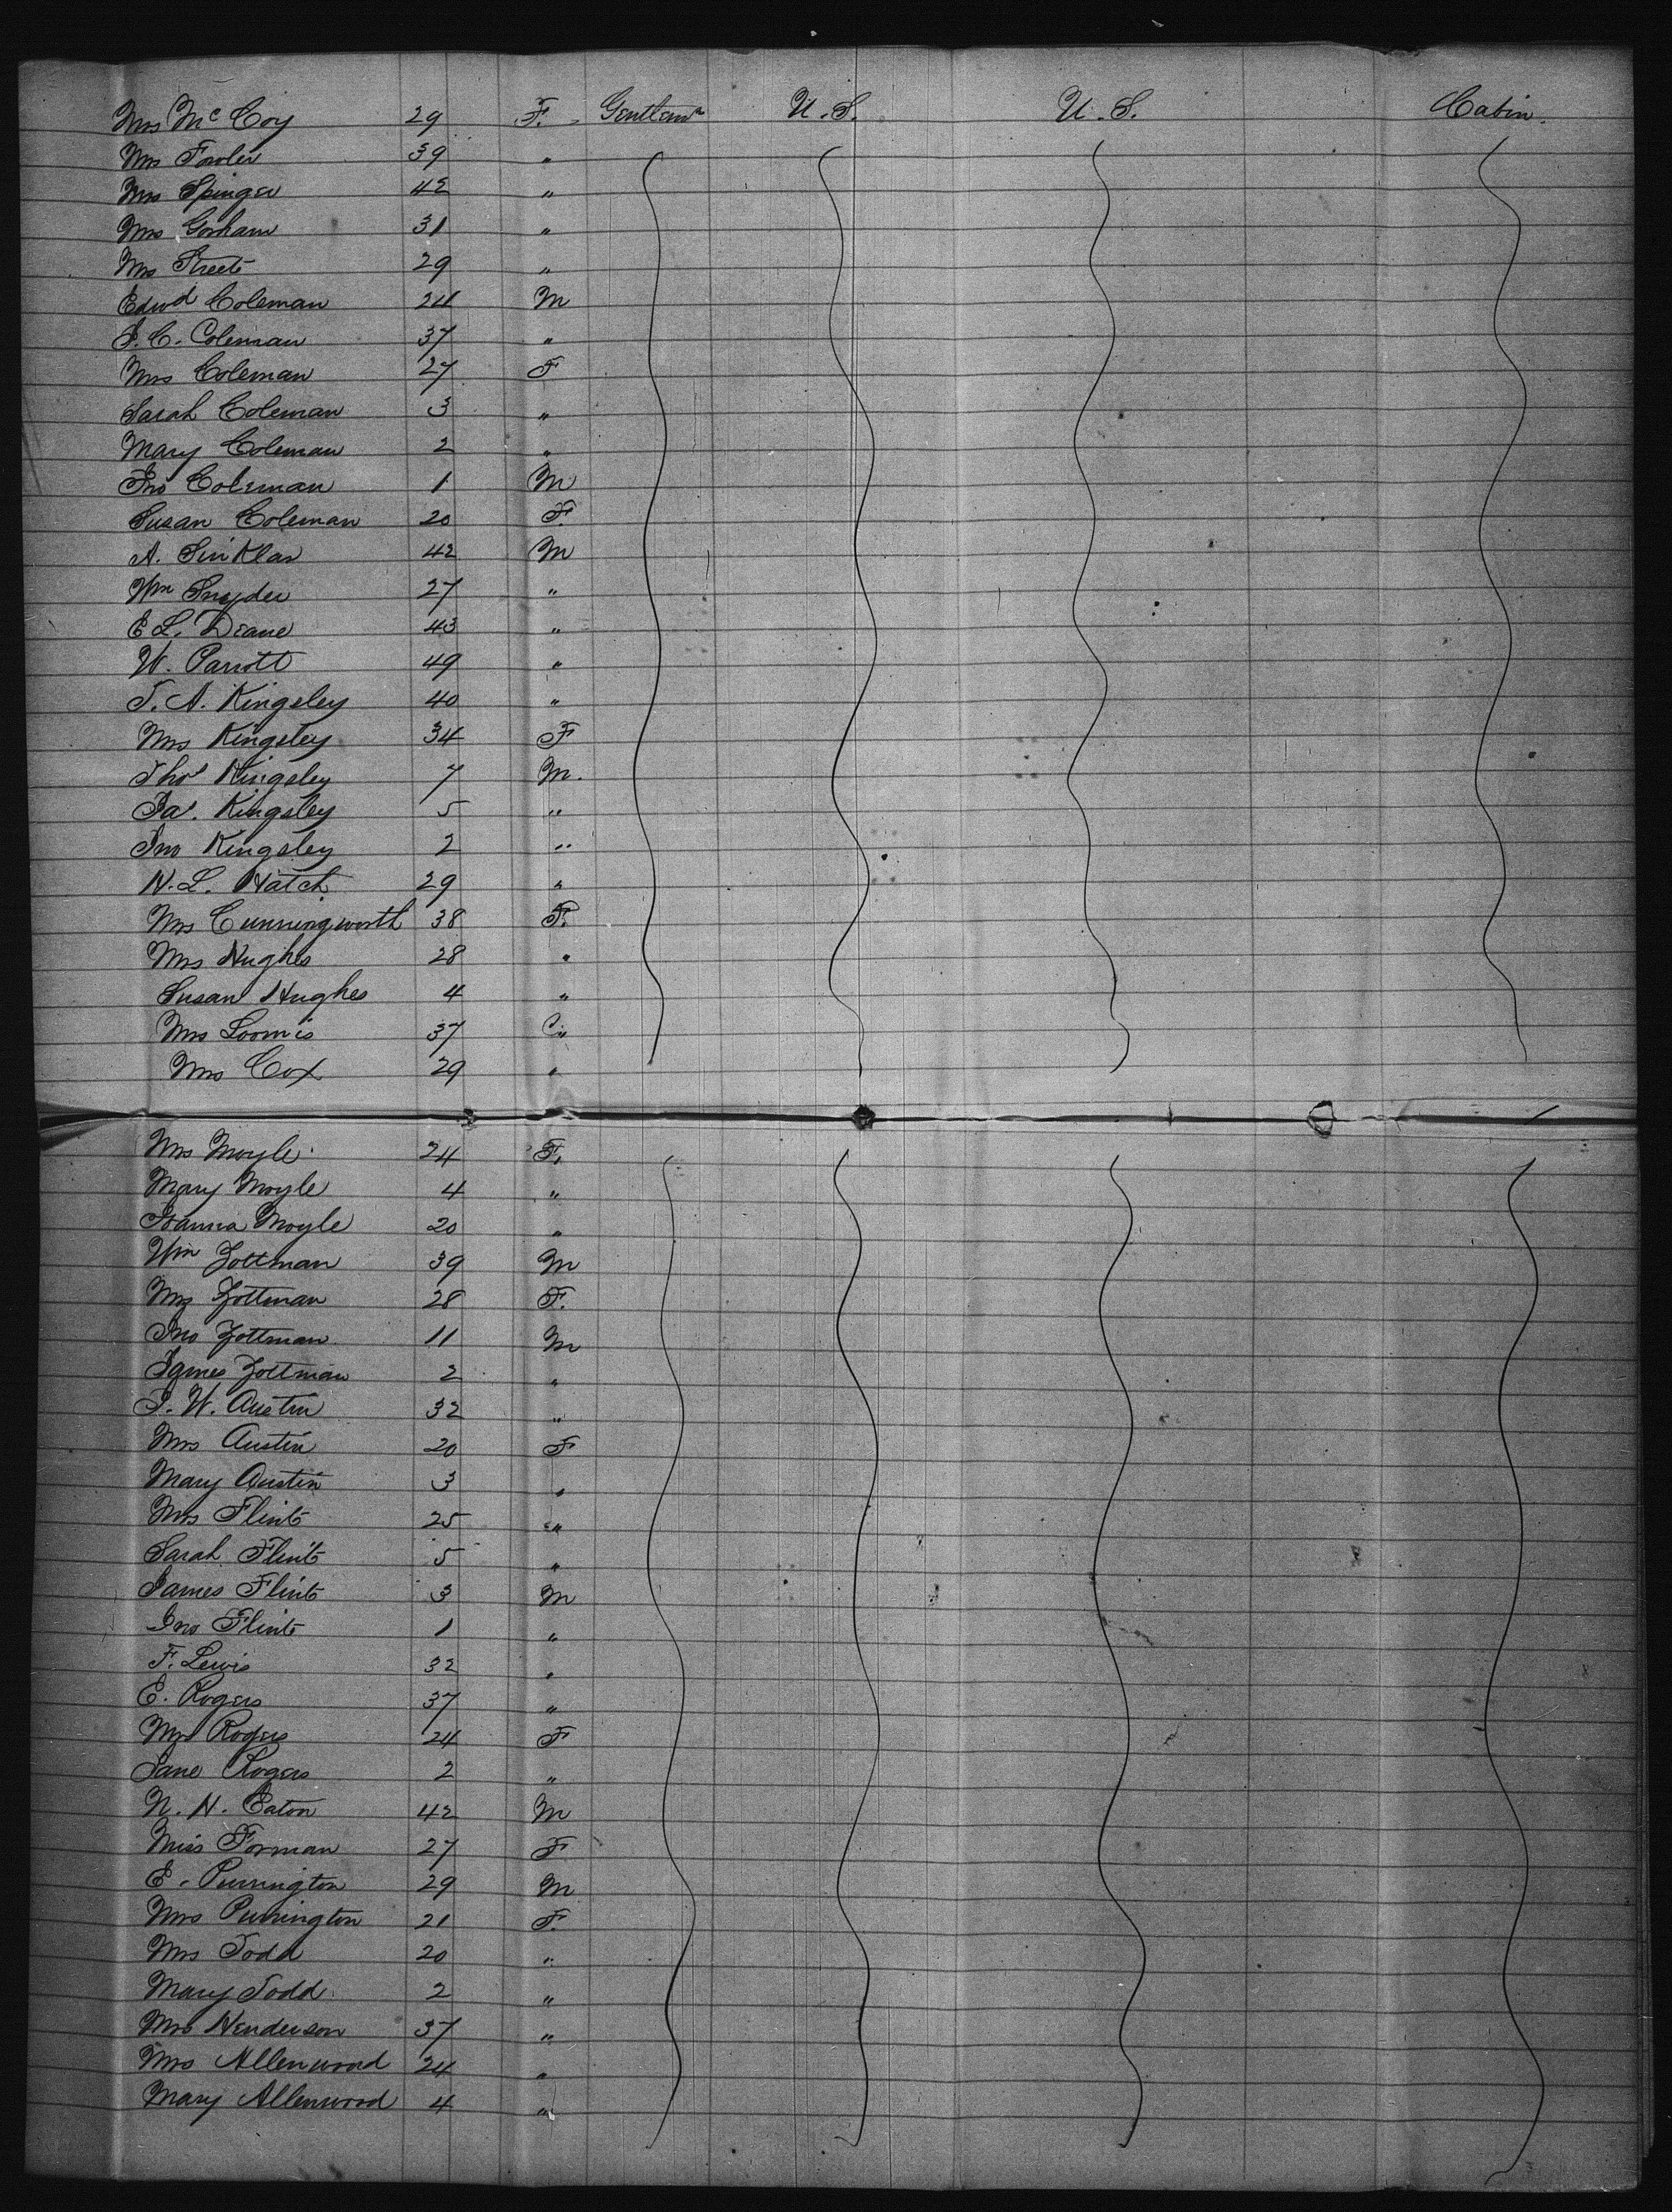 Mrs McCoy 29 F. Gentlemn U.S. U.S. Cabin.
Mrs Fowler 39 "
Mrs Spinger 42 "
Mrs Gorham 31 "
Mrs Streets 29 "
Edwd Coleman 24 M
J. C. Coleman 37 "
Mrs Coleman 27 F
Sarah Coleman 3 "
Mary Coleman 2 "
Jno Coleman 1 M
Susan Coleman 20 F.
A. Sinklar 42 M
Wm Snyder 27 "
E L. Deane 43 "
W. Parrott 49 "
T. A. Kingsley 40 "
Mrs Kingsley 34 F
Thos Kingsley 7 M.
Jas. Kingsley 5 "
Jno Kingsley 2 "
H. L. Hatch 29 "
Mrs Cunningworth 38 F.
Mrs Hughes 28 "
Susan Hughes 4 "
Mrs Loomis 37 "
Mrs Cox 29 "
Mrs Moyle 24 F.
Mary Moyle 4 "
Joanna Moyle 20 "
Wm Zottman 39 M
Mrs Zottman 28 F.
Jno Zottman 11 M
James Zottman 2 "
J. W. Austin 32 "
Mrs Austin 20 F
Mary Austin 3 "
Mrs Flint 25 "
Sarah Flint 5 "
James Flint 3 M
Jno Flint 1 "
F. Lewis 32 "
E. Rogers 37 "
Mrs Rogers 24 F
Jane Rogers 2 "
N. H. Eaton 42 M
Miss Forman 27 F
E. Purrington 29 M
Mrs Purrington 21 F.
Mrs Todd 20 "
Mary Todd 2 "
Mrs Henderson 37 "
Mrs Allenwood 24 "
Mary Allenwood 4 "